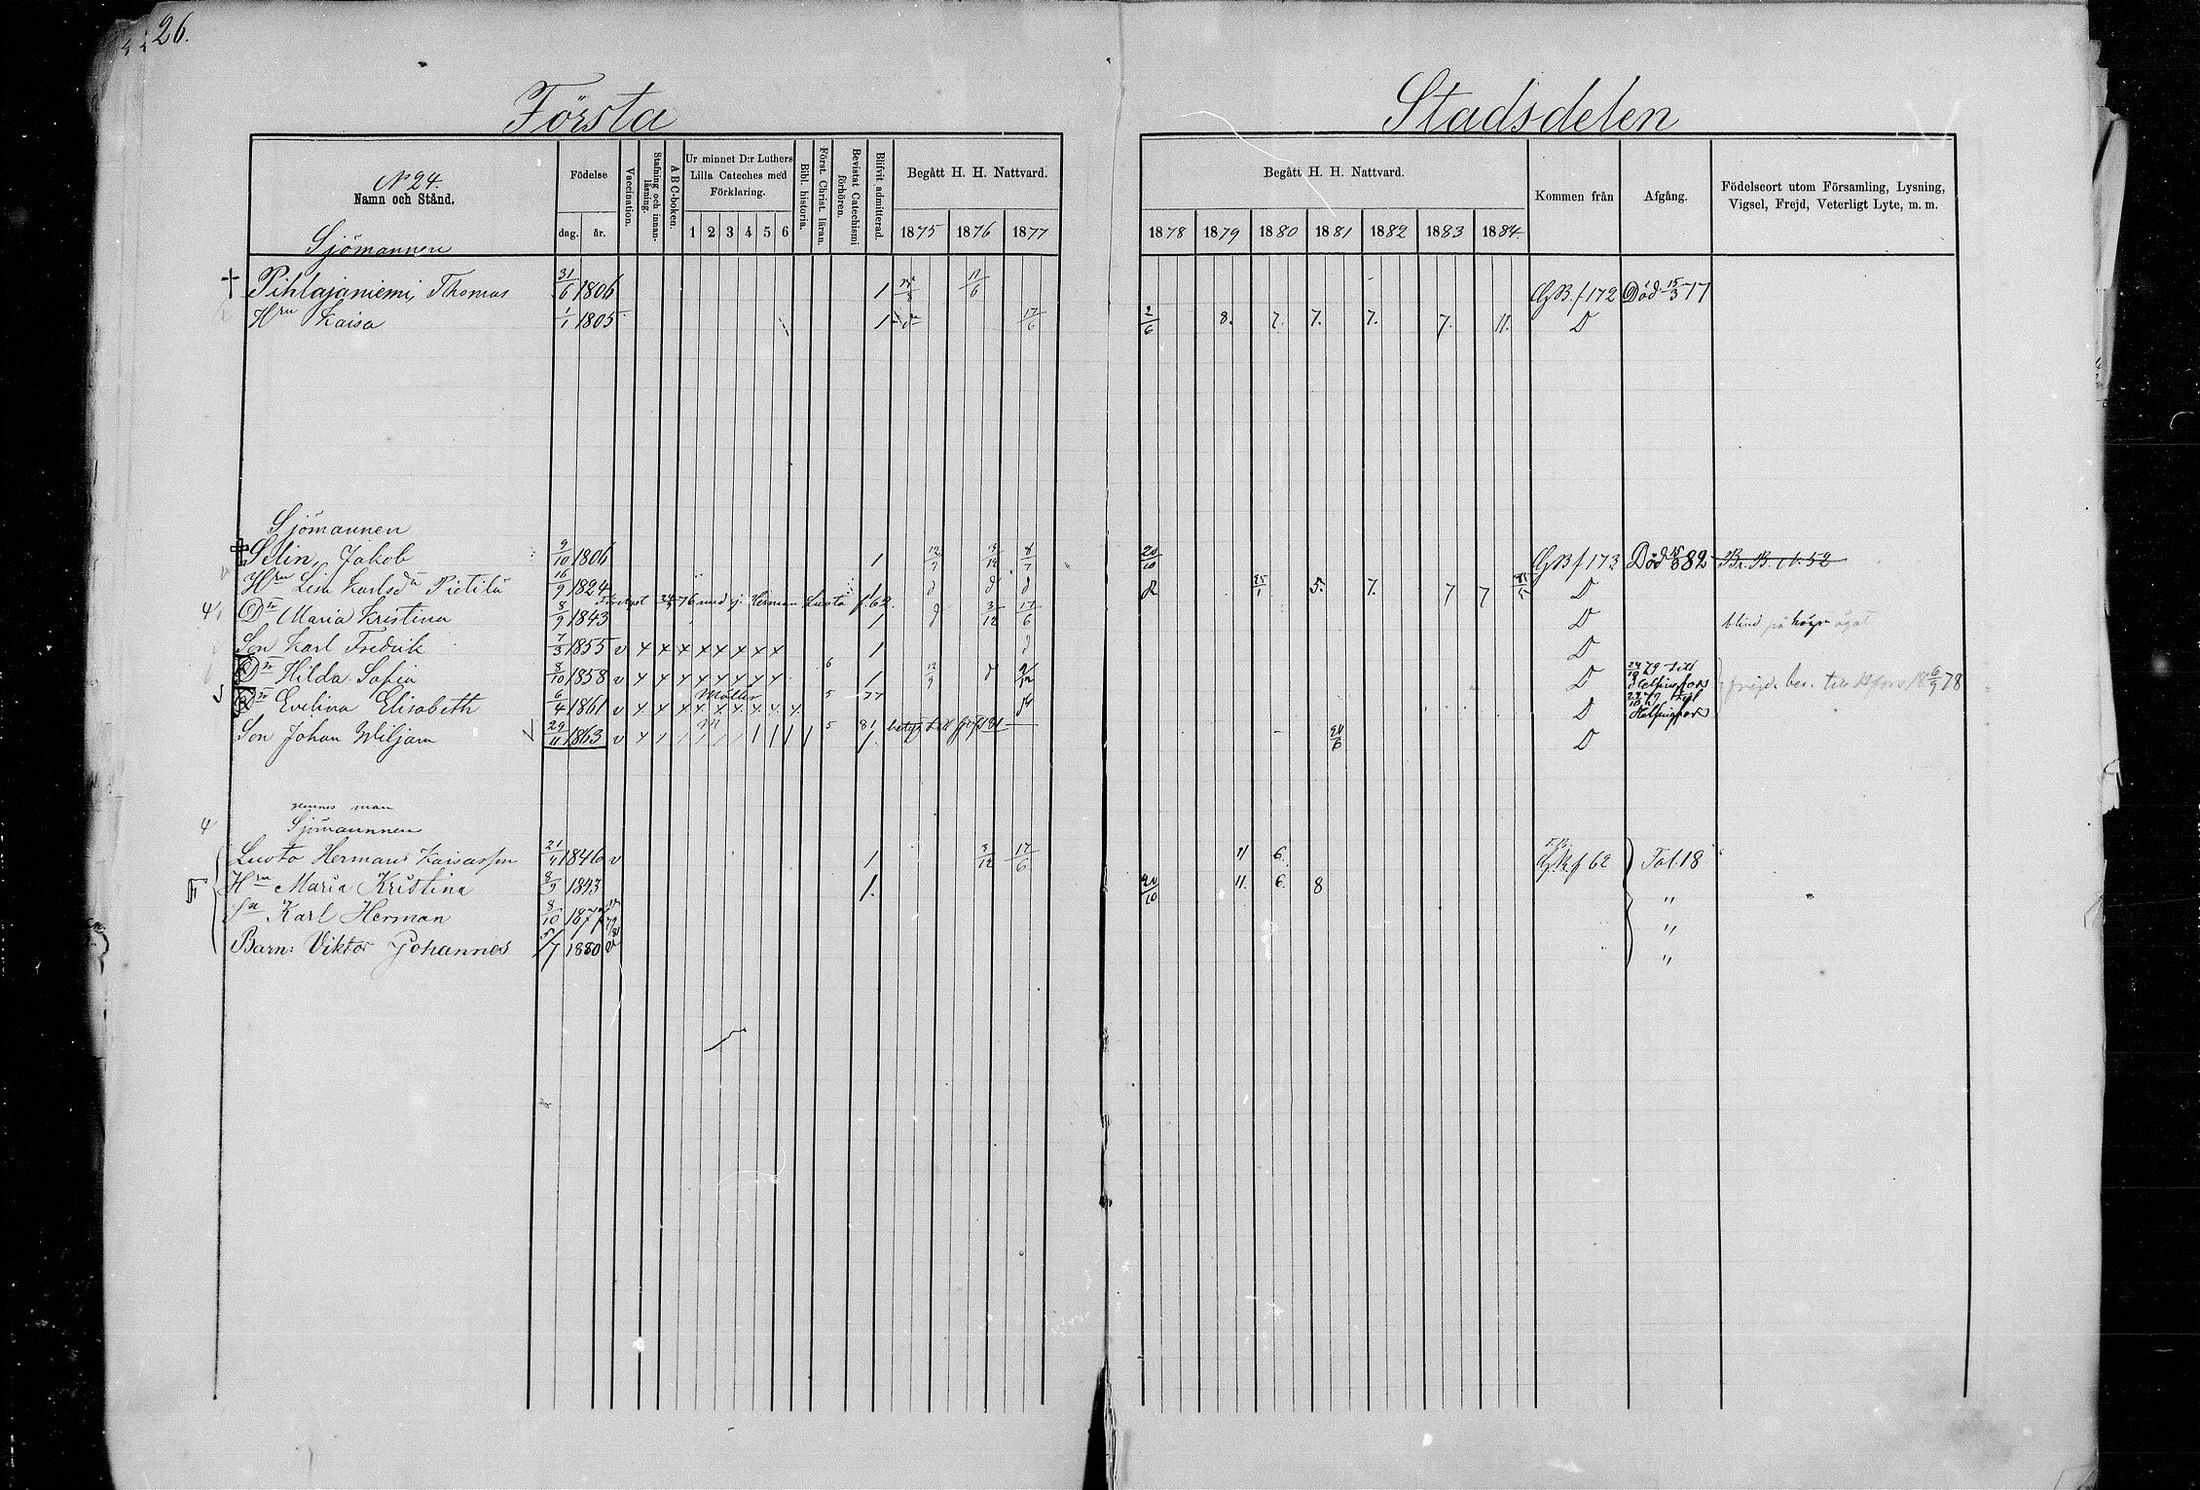 26.
Första Stadsdelen
N 24.
Namn och Stånd.
Födelse
dag. år.
Vaccination.
Stafning och innanläsning.
A B C-boken.
Ur minnet D:r Luthers Lilla Cateches med Förklaring.
1 2 3 4 5 6
Bibl. historia.
Först. Christ. läran.
Bevistat Catechismi förhören.
Blifvit admitterad.
Begått H. H. Nattvard.
1875 1876 1877
Begått H. H. Nattvard.
1878 1879 1880 1881 1882 1883 1884.
Kommen från
Afgång.
Födelseort utom Församling, Lysning, Vigsel, Frejd, Veterligt Lyte, m. m.
Sjömannen
Pihlajaniemi, Thomas 31/6 1806 1 11/6 GB. f 172 Död 15/3 77
Hru Kaisa 1/1 1805 1 17/6 2/6 8. 7. 7. 7. 7. 11. D
Sjömannen
Selin, Jakob 9/10 1806 1 12/9 3/12 8/7 20/10 GB f 173 Död 15/3 82 Br. B. 52
Hru Lisa Karlsdr Pietilä 16/9 1824 5. 7. 7 7 D
76 med sj. Herman Lusto f. 62.
Dr Maria Kristina 8/9 1843 1 3/12 17/6 D blind på högra ögat
Son Karl Fredrik 7/3 1855 v x x x x x x x x 1 D
Dr Hilda Sofia 8/10 1858 v x x x x x x x x 6 1 12/9 D 79 till Helsingfors
Dr Evelina Elisabeth 6/4 1861 v x x x x x x x x x 5 77 D Helsingfors
Son Johan Wiljam 29/11 1863 v x 5 81 1. D
hennes man
Sjömannnen
Lusto Herman Kaisasson 21/4 1846 v 1 3/12 17/6 11 6. f 62 Fol. 18
Hru Maria Kristina 8/9 1843 1. 20/10 11. 6. 8 "
Sn Karl Herman 8/10 1877 "
Barn: Viktor Johannes 5/7 1880 v "